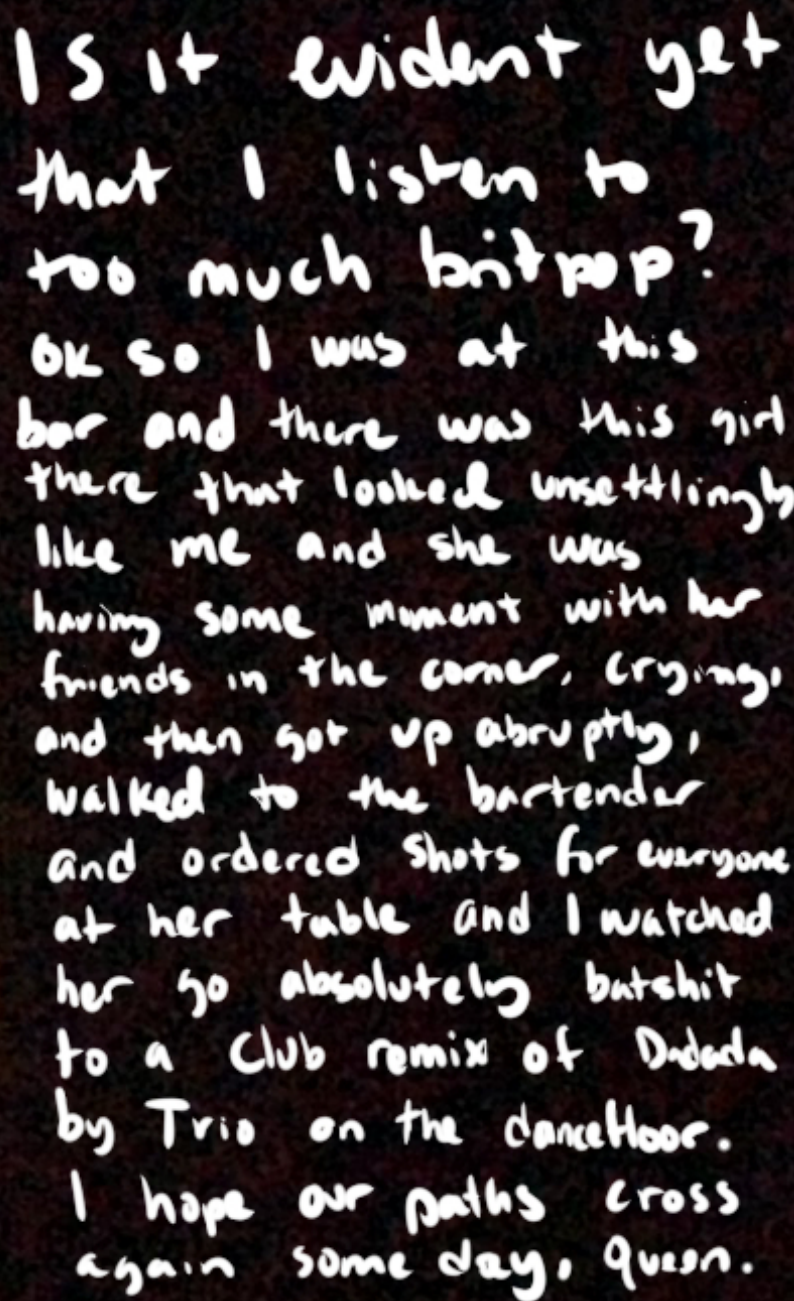 Is it evident yet
that I listen to
too much britpop?
OK so I was at this
bar and there was this girl
there that looked unsettlingly
like me and she was
having some moment with her
friends in the corner, crying,
and then got up abruptly,
walked to the bartender
and ordered shots for everyone
at her table and I watched
her go absolutely batshit
to a Club remix of Dadada
by Trio on the dancefloor.
I hope our paths cross
again some day, queen.